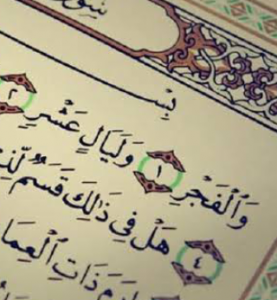 سُورَ
بِسْـ
وَٱلْفَجْرِ ١ وَلَيَالٍ عَشْرٍ ٢
هَلْ فِى ذَٰلِكَ قَسَمٌ لِّذِ
٤
ذَاتِ ٱلْعِمَا